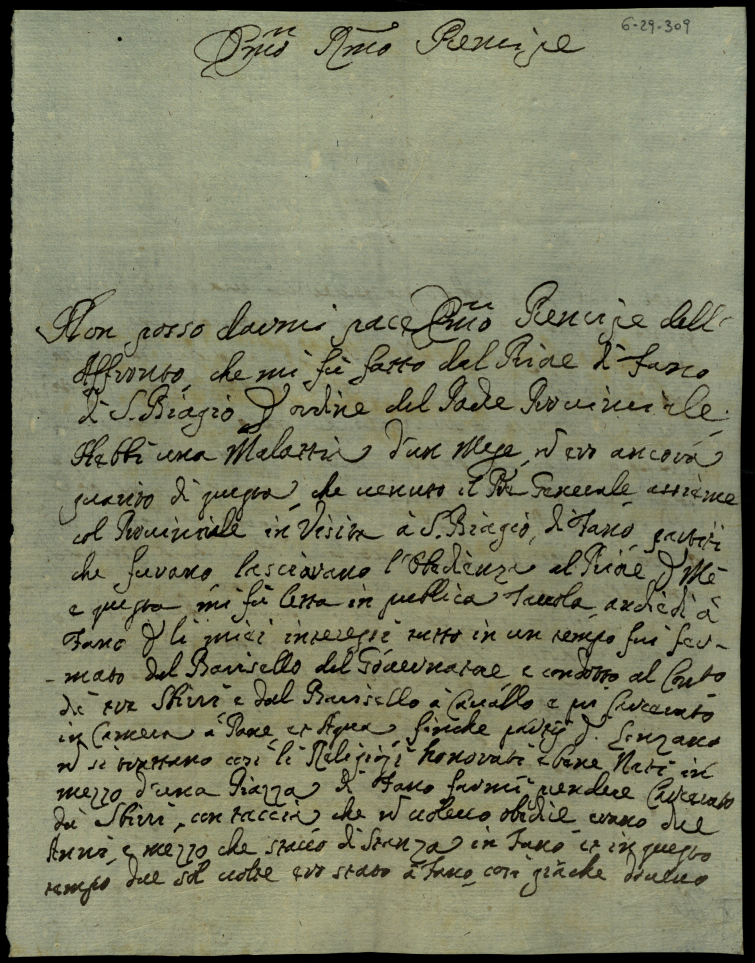 6-29-309
Emo Rmo Prencipe
Non posso darmi pace Emo Prencipe dell'
Affronto, che mi fù fatto dal Priore di Fano
di S. Biagio ordine del Padre Provinciale.
Hebbi una Malattia d'un Mese, ero ancora
guarito di questa, che venuto il Pre Generale assieme
col Provinciale in Visita à S. Biagio di Fano, partiti
che furano, lasciavano l'Obedienza al Priore Mè
e questa mi fù letta in publica Tavola, andiedi à
Fano li miei interessi tutto in un tempo fui fer-
-mato dal Barisello del Governatore e condotto al
da Sbirri e dal Barisello à Cavallo e Carcerato
in Camera à Pane, et Aqua finche
si trattano così li Religiosi honorati e bene Nati in
mezzo d'una Piazza di Fano farmi rendere Carcerato
da Sbirri, con taccia che volevo obidie erano due
Anni, e mezzo che stavo di Stanza in Fano et in questo
tempo due sol volte ero stato à Fano, così giàche dovevo